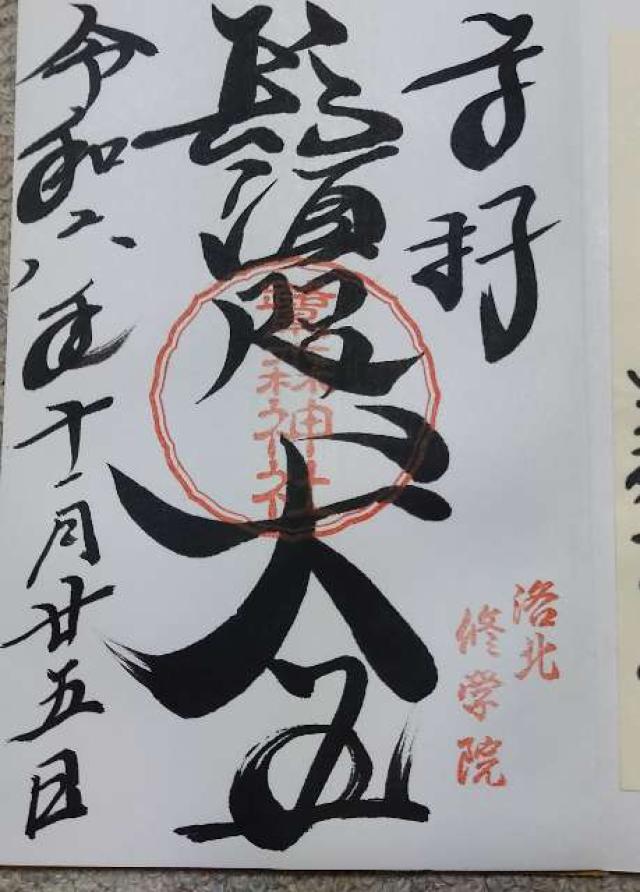 奉拝
洛北
修学院
鬚咫天王
鷺森神社
令和六年十一月廿五日